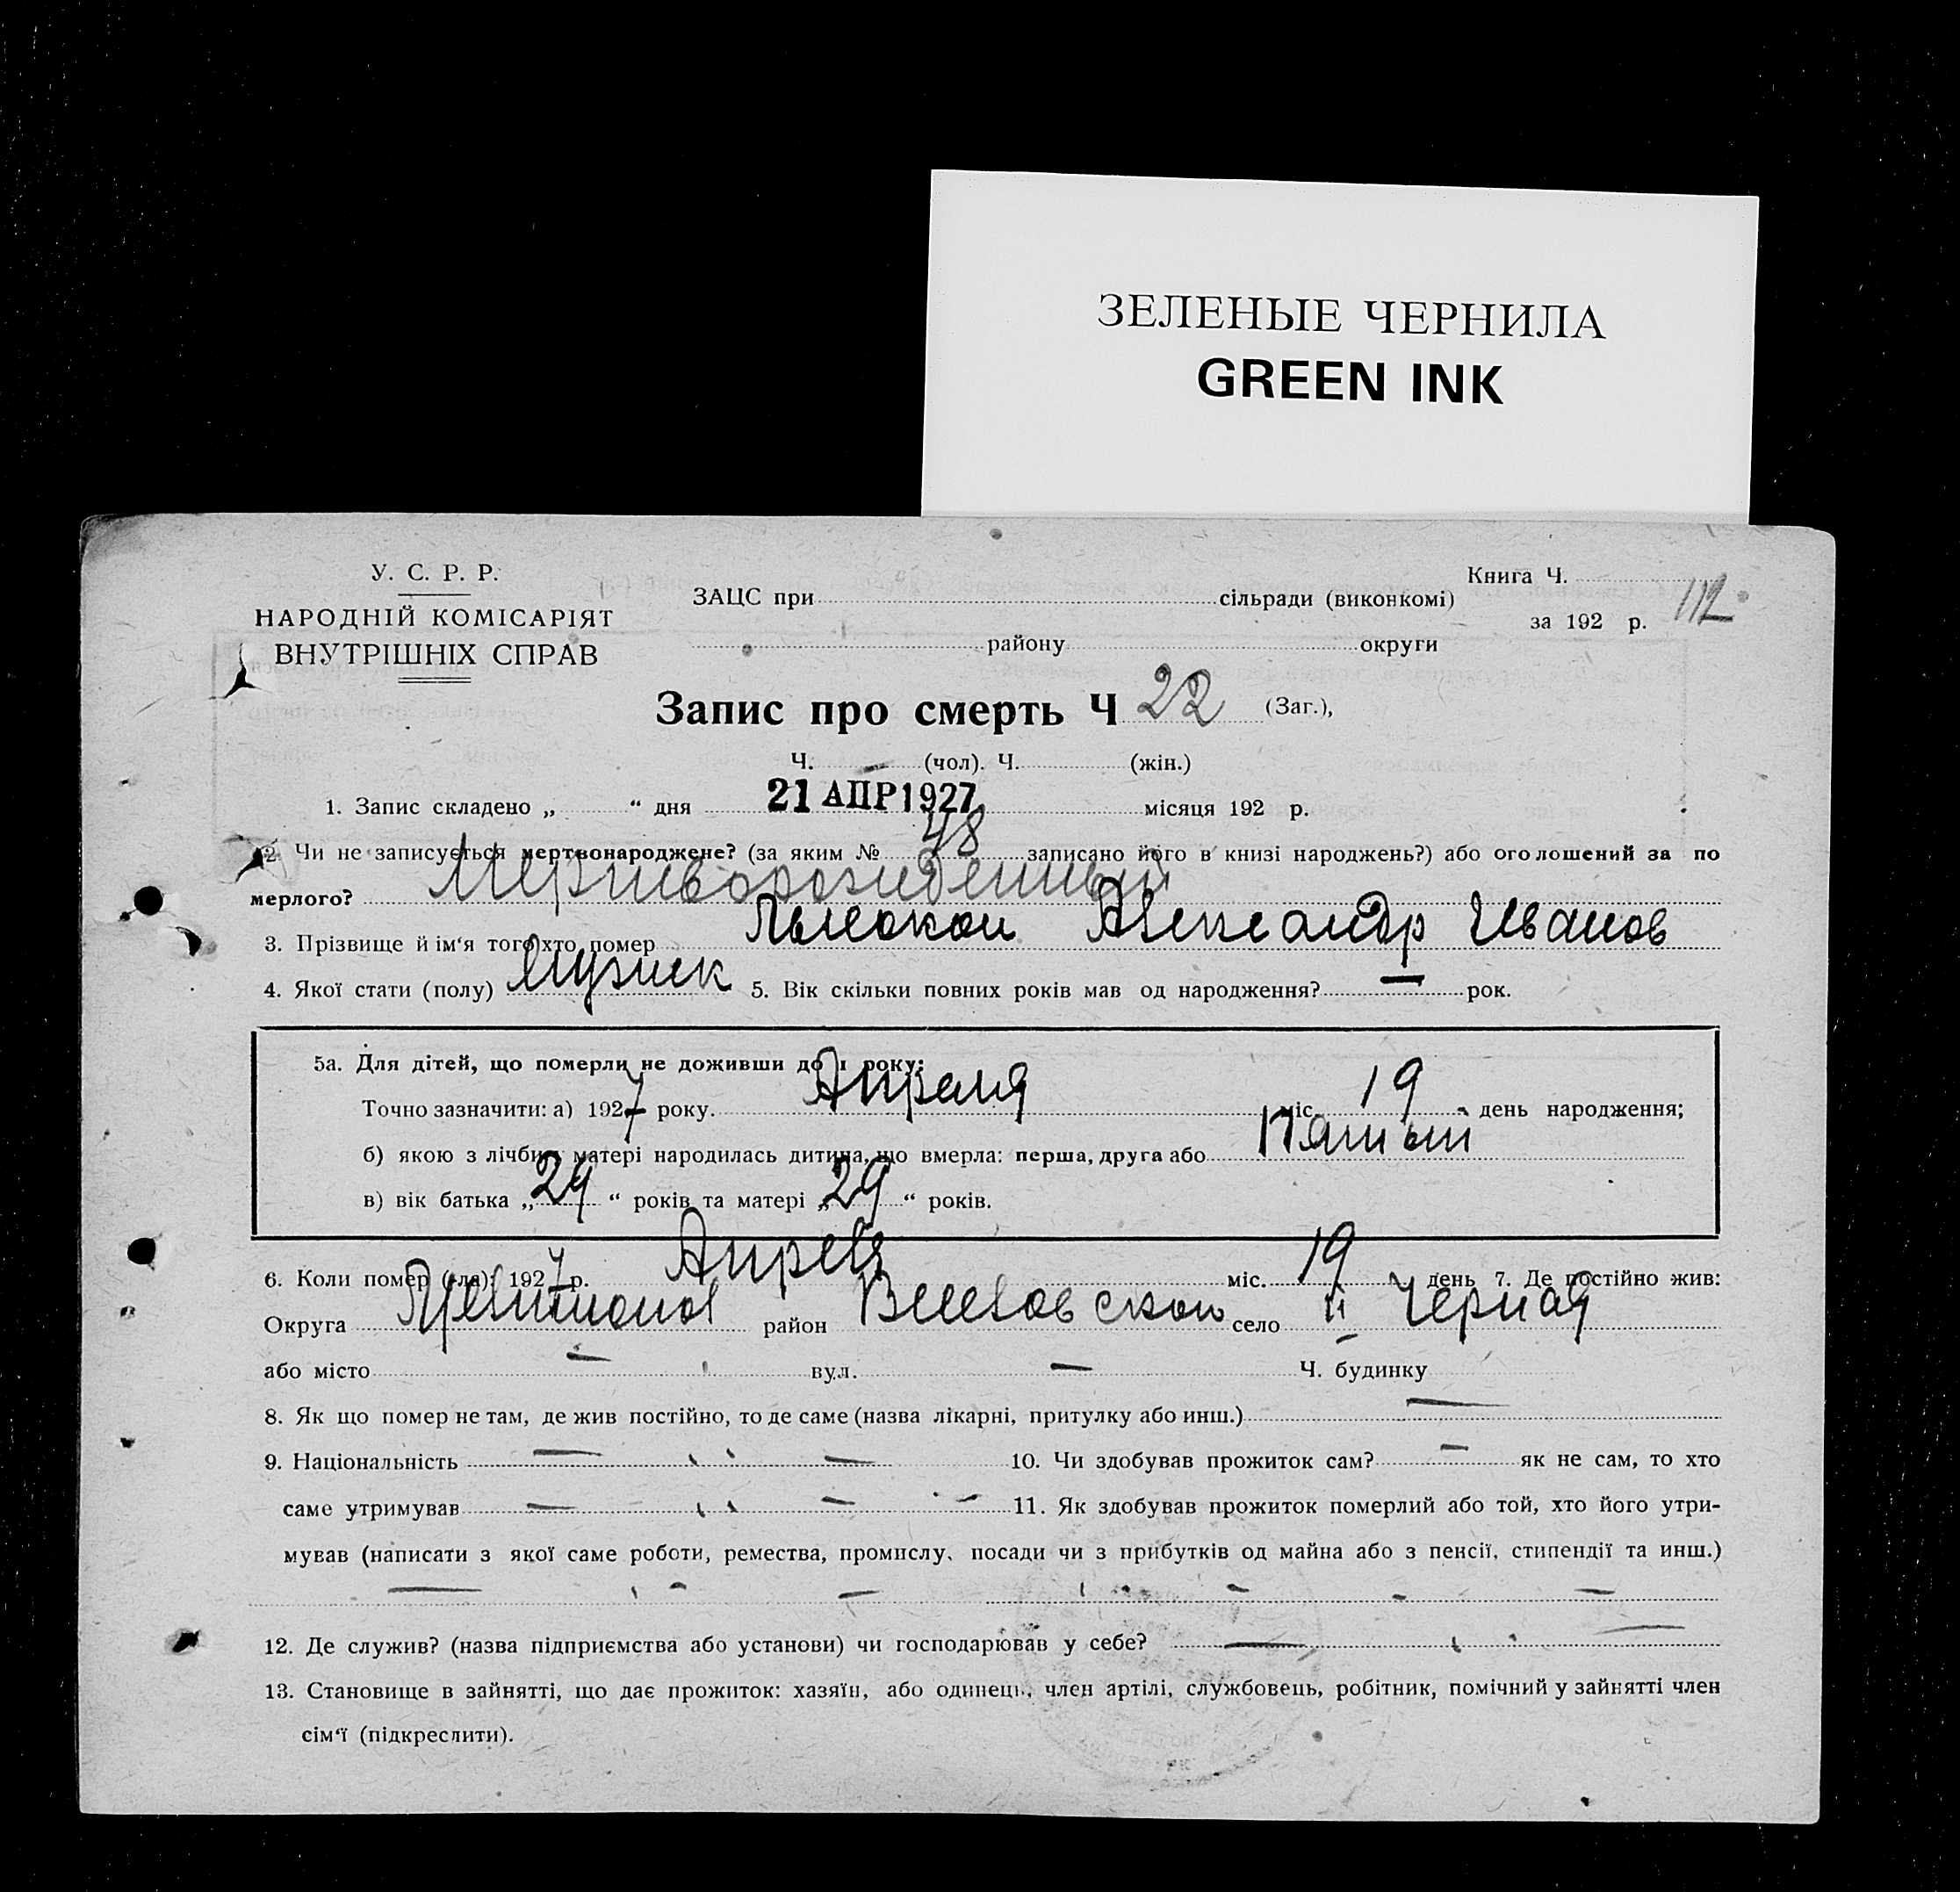 ЗЕЛЕНЫЕ ЧЕРНИЛА
GREEN INK
У. С. Р. Р.
НАРОДНІЙ КОМІСАРІЯТ
ВНУТРІШНІХ СПРАВ
ЗАЦС при сільради (виконкомі)
району округи
Книга Ч.
за 192 р. 112
Запис про смерть Ч 22 (Заг.),
Ч. — (чол). Ч. (жін.)
1. Запис складено „ “ дня 21 АПР 1927 місяця 192 р.
2. Чи не записується мертвонароджене? (за яким № 48 записано його в книзі народжень?) або оголошений за по
мерлого? Мертворожденный
3. Прізвище й ім‘я того хто помер Александр Иванов
4. Якої стати (полу) 5. Вік скільки повних років мав од народження? — рок.
5а. Для дітей, що померли не доживши до 1 року:
Точно зазначити: а) 1927 року. Апреля міс. 19 день народження;
б) якою з лічби у матері народилась дитина, що вмерла: перша, друга або Пятый
в) вік батька „ 29 “ років та матері „ 29 “ років.
6. Коли помер (ла): 1927 р. Апреля міс. 19 день 7. Де постійно жив:
Округа район село Черная
або місто — вул. — Ч. будинку
8. Як що помер не там, де жив постійно, то де саме (назва лікарні, притулку або инш.) —
9. Національність — „ — 10. Чи здобував прожиток сам? — як не сам, то хто
саме утримував — „ — 11. Як здобував прожиток померлий або той, хто його утри-
мував (написати з якої саме роботи, ремества, промислу, посади чи з прибутків од майна або з пенсії, стипендії та инш.)
12. Де служив? (назва підприємства або установи) чи господарював у себе? —
13. Становище в зайнятті, що дає прожиток: хазяїн, або одинець, член артілі, службовець, робітник, помічний у зайнятті член
сім‘ї (підкреслити).